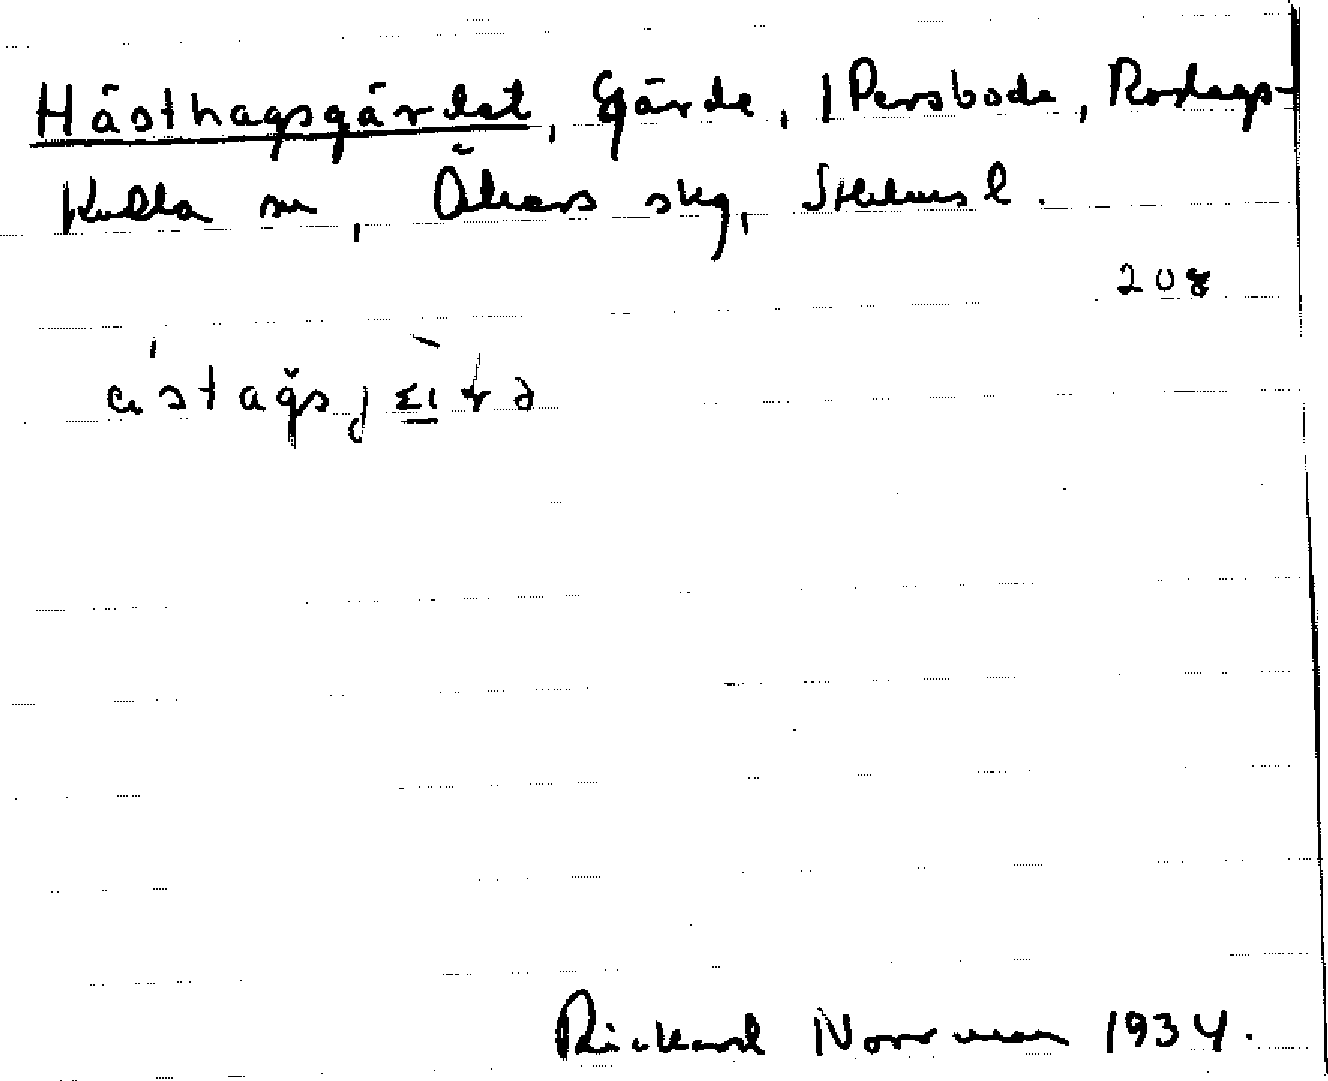 Hästhagsgärdet, Gärde, i Persboda, Roslags-
Kulla sn, Åkers skg, Sthlms l.
208
Rickard Norrman 1934.